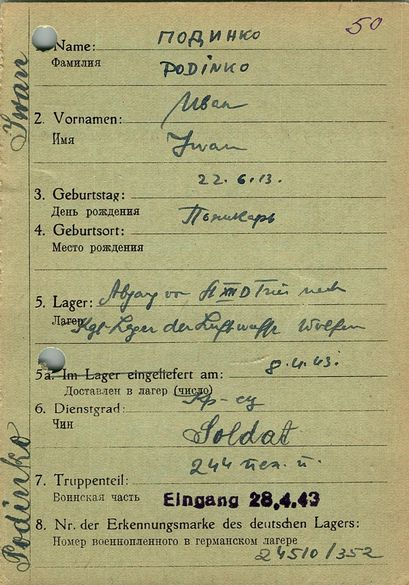 50
1. Name: ПОДИНКО
Фамилия PODINKO
Иван
2. Vornamen:
Имя Iwan
22.6.13.
3. Geburtstag:
День рождения
4. Geburtsort:
Место рождения
5. Lager: Abgang von XII D Trier nach
Лагерь Kgf-Lager der Luftwaffe Wolfen
8.4.43.
5a. Im Lager eingeliefert am:
Доставлен в лагерь (число)
Кр-ец
6. Dienstgrad:
Чин Soldat
244 пех. п.
7. Truppenteil:
Воинская часть Eingang 28.4.43
8. Nr. der Erkennungsmarke des deutschen Lagers:
Номер военнопленного в германском лагере
24510/352
Iwan
Podinko